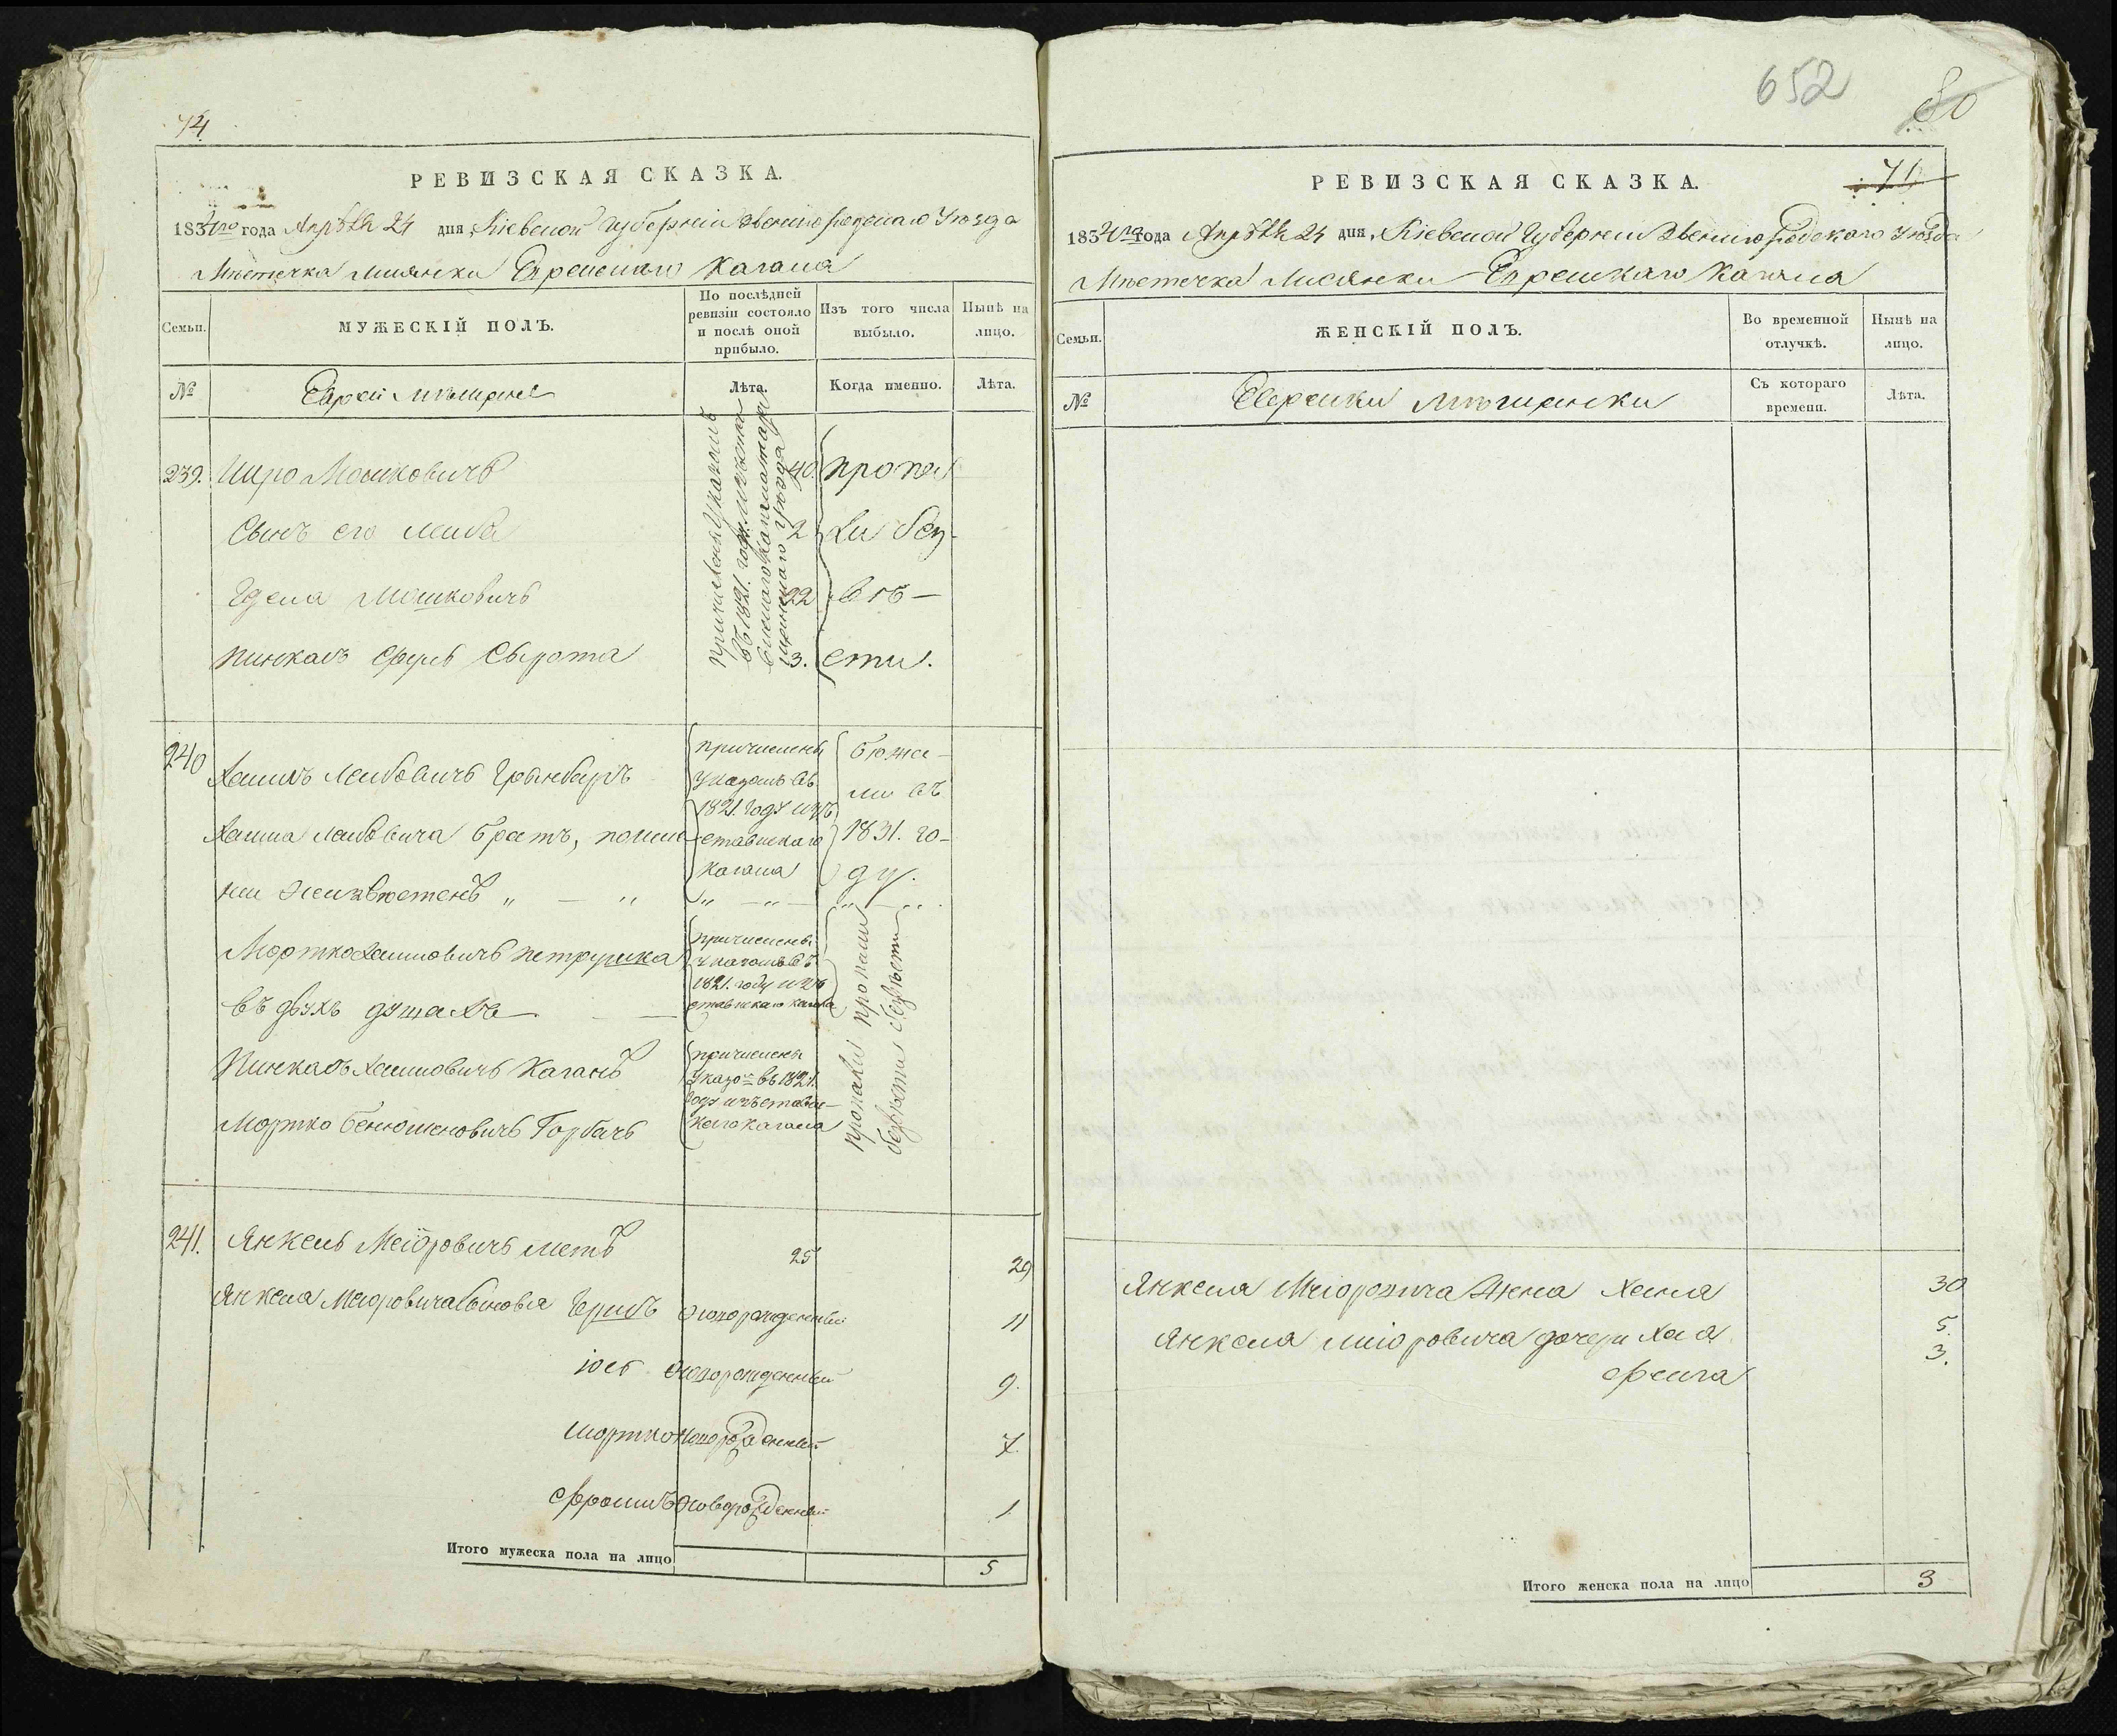 74
РЕВИЗСКАЯ СКАЗКА.
1834го года Апрѣля 24 дня, Кіевской Губерніи Звенигородскаго Уѣзда
Мѣстечка Лисянки Еврейскаго Кагала
Семьи.
МУЖЕСКІЙ ПОЛЪ.
По послѣдней ревизіи состояло и послѣ оной прибыло.
Изъ того числа выбыло.
Нынѣ на лицо.
№
Евреи мѣщане
Лѣта.
Когда именно.
Лѣта.
239. Мошковичъ 40. пропа
Сынъ его Лейба 2 ли без
Мошковичъ 22 вѣ-
Пинкасъ Сырота 3. сти.
причислены указомъ
въ 1821. году
240 Хаимъ Лейбовичъ Гринбергъ
причислены указомъ въ 1821. году изъ ставискаго кагала
бѣжали въ 1831. году.
Хаима Лейбовича братъ,
Мортко Хаимовичъ Петрушка
въ двухъ душахъ
причислены указомъ въ 1821. году изъ ставискаго кагала
пропали безвѣсти
Пинкасъ Хаимовичъ Каганъ
Мортко Бенюменовичъ Горбачъ
причислены указо въ 1821. году изъ ставискаго кагала
пропали безвѣсти
241. Янкель Меіоровичъ 25 29
Янкеля Меіоровича сыновья Гершъ новорожденный 11
Іосъ новорожденный 9.
Мортко новорожденный 7.
Фроимъ новорожденный 1.
Итого мужеска пола на лицо 5
652
80
74
РЕВИЗСКАЯ СКАЗКА.
1834го года Апрѣля 24 дня, Кіевской Губерніи Звенигородскаго Уѣзда
Мѣстечка Лисянки Еврейскаго Кагала
Семьи.
ЖЕНСКІЙ ПОЛЪ.
Во временной отлучкѣ.
Нынѣ на лицо.
№
Еврейки мѣщанки
Съ котораго времени.
Лѣта.
Янкеля Меіоровича жена Хана 30
Янкеля Меіоровича дочери Хая 5.
Фейга 3.
Итого женска пола на лицо 3